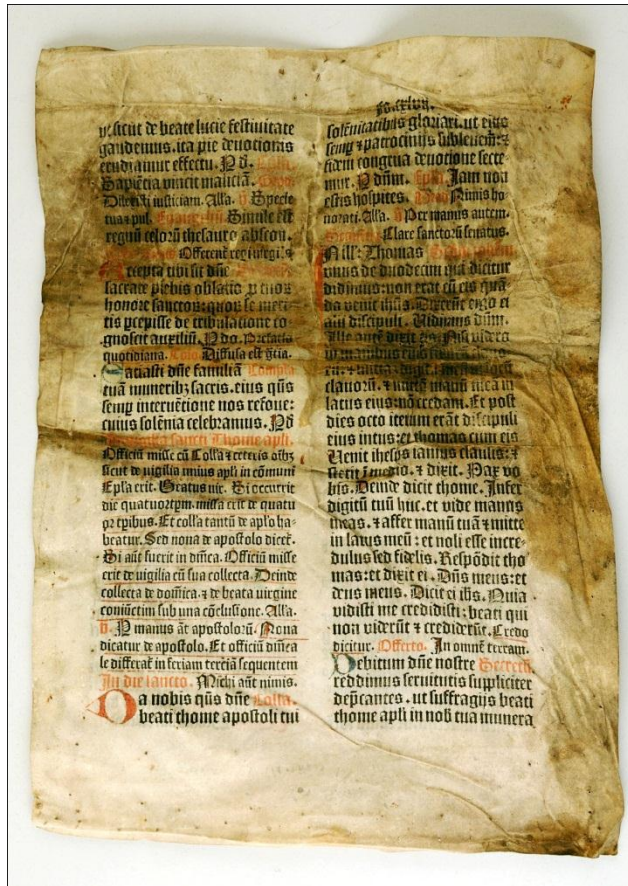 ut sicut de beate lucie festiuitate
gaudemus. ita pie deuotionis
erudiamur effectu. P d.
Sapiētia vincit maliciā.
Dilexisti iusticiam. Alla. v Specie
tua ⁊ pul. Euangeliū Simile est
regnū celorū thesauro abscon.
Offerent̄ regi virgīes
Accepta tibi sit dn̄e Secreta
sacrate plebis oblatio ꝓ tuoꝝ
honore sanctoꝝ: quoꝝ se meri-
tis ꝑcepisse de tribulatione co-
gnoscit auxiliū. P do. Prefatio
quotidiana. Cōio Diffusa est gr̄tia.
Satiasti dn̄e familiā Compla
tuā muneribꝫ sacris. eius qu̅s
semꝑ interuētione nos refoue:
cuius solēnia celebramus. P d
Vigilia sancti Thome apl̄i.
Officiū misse cū Colla ⁊ ceteris oībꝫ
sicut de vigilia vnius apl̄i in cōmuni
Epl̄a erit. Bn̄dictus vir. Si occurrit
die quatuortpm. missa erit de quatu
or tpibus. Et colla tantū de apl̄o ha-
beatur. Sed nona de apostolo dicet̄.
Si aūt fuerit in dn̄ica. Officiū misse
erit de vigilia cū sua collecta. Deinde
collecta de dom̄ica. ⁊ de beata virgine
coniūctim sub vna cōclusione. Alla.
v. P manus āt apostoloꝝ. Nona
dicatur de apostolo. Et officiū dn̄ica
le differat̄ in feriam terciā sequentem
In die sancto. Michi aūt nimis.
Da nobis qu̅s dn̄e Colla.
beati thome apostoli tui
Fo. cxlvii.
solēnitatibus gloriari. ut eius
semꝑ ⁊ patrocinijs subleuem̄: ⁊
fidem congrua deuotione secte-
mur. P dn̄m. Epl̄a. Iam non
estis hospites. Nimis ho-
norati. Alla. v Per manus autem.
Clare sanctorū senatus.
Nill: Thomas
vnus de duodecim qui dicitur
didimus: non erat cū eis quā-
do venit ih̄us. Dixerūt ergo ei
alij discipuli. Uidimus dn̄m.
Ille autē dixit eis. Nisi videro
in manibus eius
clauorū. ⁊ mittā manū meā in
latus eius: nō credam. Et post
dies octo iterum erāt discipuli
eius intus: et thomas cum eis
Uenit ihesus ianuis clausis: ⁊
stetit ī medio. ⁊ dixit. Pax vo
bis. Deinde dicit thome. Infer
digitū tuū huc. et vide manus
meas. ⁊ affer manū tuā ⁊ mitte
in latus meū: et noli esse incre-
dulus sed fidelis. Respōdit tho
mas: et dixit ei. Dn̄s meus: et
deus meus. Dicit ei ih̄s. Quia
vidisti me credidisti: beati qui
non viderūt ⁊ crediderūt. Credo
dicitur. Offerto. In omnē terram.
Debitum dn̄e nostre Secreta.
reddimus seruitutis suppliciter
deꝑcantes. ut suffragijs beati
thome apl̄i in nob̄ tua munera